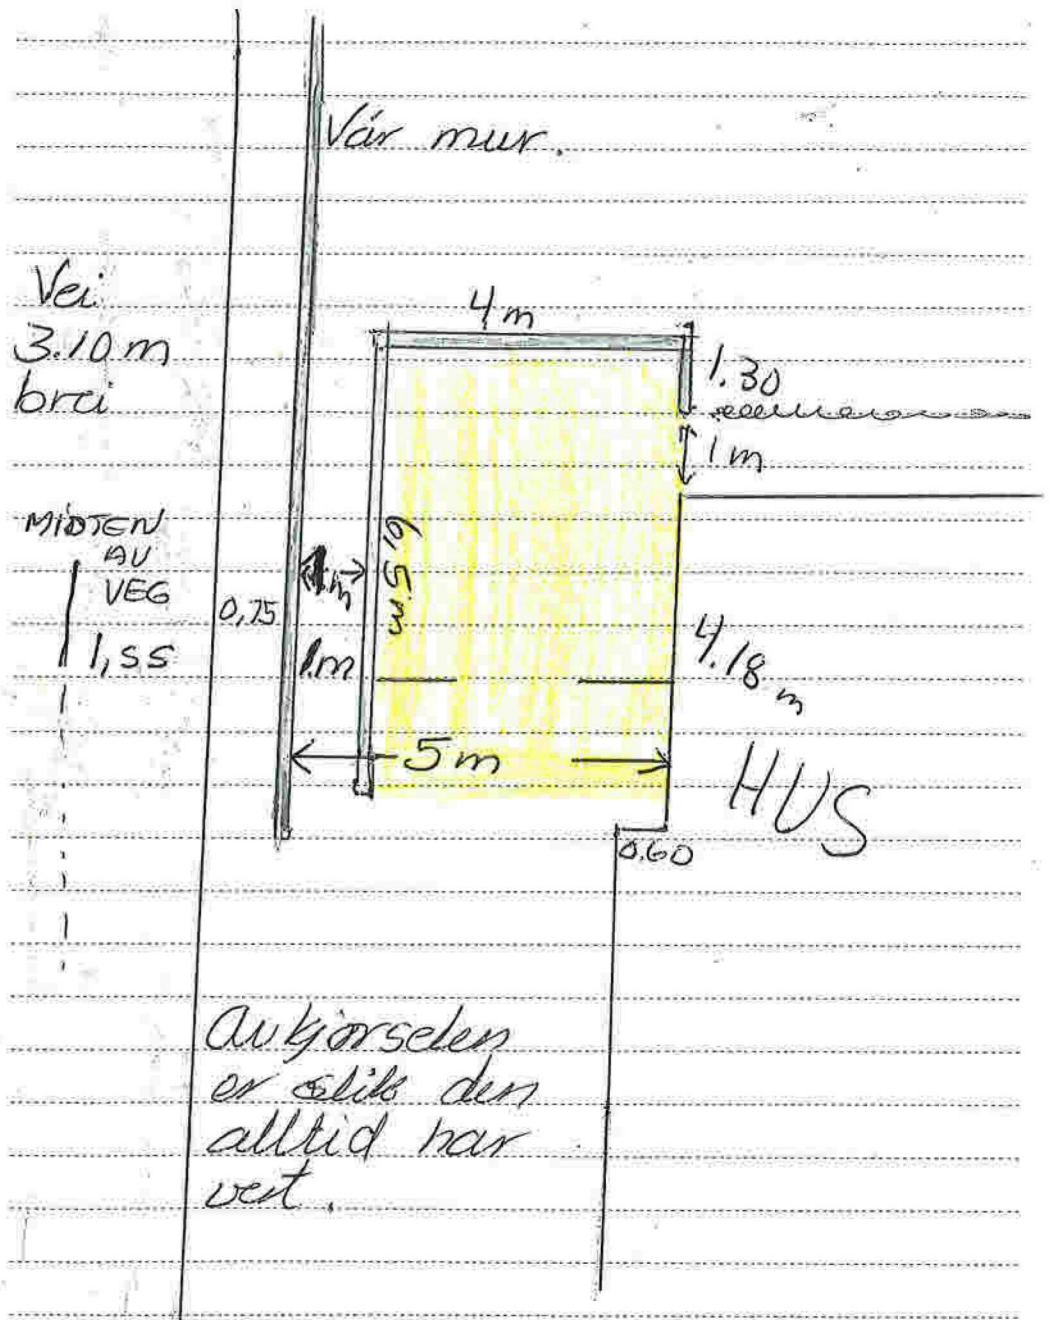 Vår mur.
Vei
3.10 m
brei
4 m
1.30
1 m
MIDTEN
AV
VEG
1,55
0,75
1m
1m
6,5 m
4.18 m
5 m
HUS
0.60
Avkjørselen
er slik den
alltid har
vert.